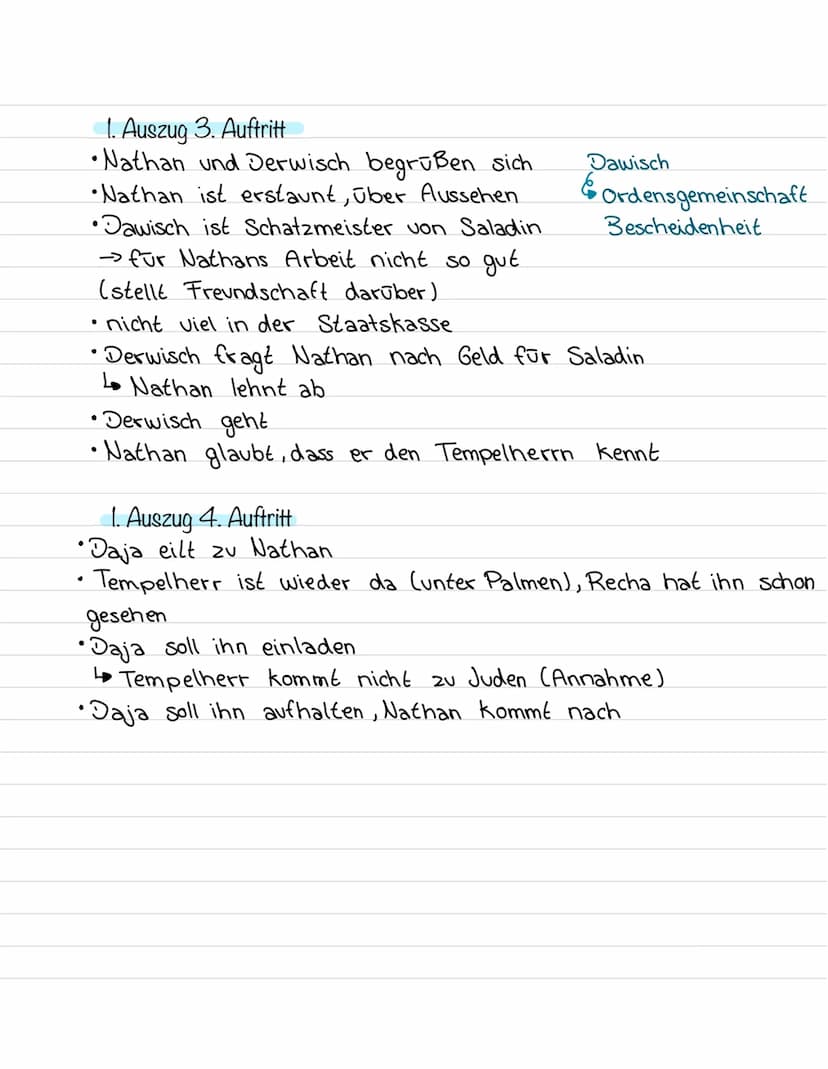 1. Auszug 3. Auftritt
• Nathan und Derwisch begrüßen sich
• Nathan ist erstaunt, über Aussehen
• Dawisch ist Schatzmeister von Saladin
→ für Nathans Arbeit nicht so gut
(stellt Freundschaft darüber)
• nicht viel in der Staatskasse
• Derwisch fragt Nathan nach Geld für Saladin
↳ Nathan lehnt ab
• Derwisch geht
• Nathan glaubt, dass er den Tempelherrn kennt
Dawisch
↳ Ordensgemeinschaft
Bescheidenheit
1. Auszug 4. Auftritt
• Daja eilt zu Nathan
• Tempelherr ist wieder da (unter Palmen), Recha hat ihn schon
gesehen
• Daja soll ihn einladen
↳ Tempelherr kommt nicht zu Juden (Annahme)
• Daja soll ihn aufhalten, Nathan kommt nach